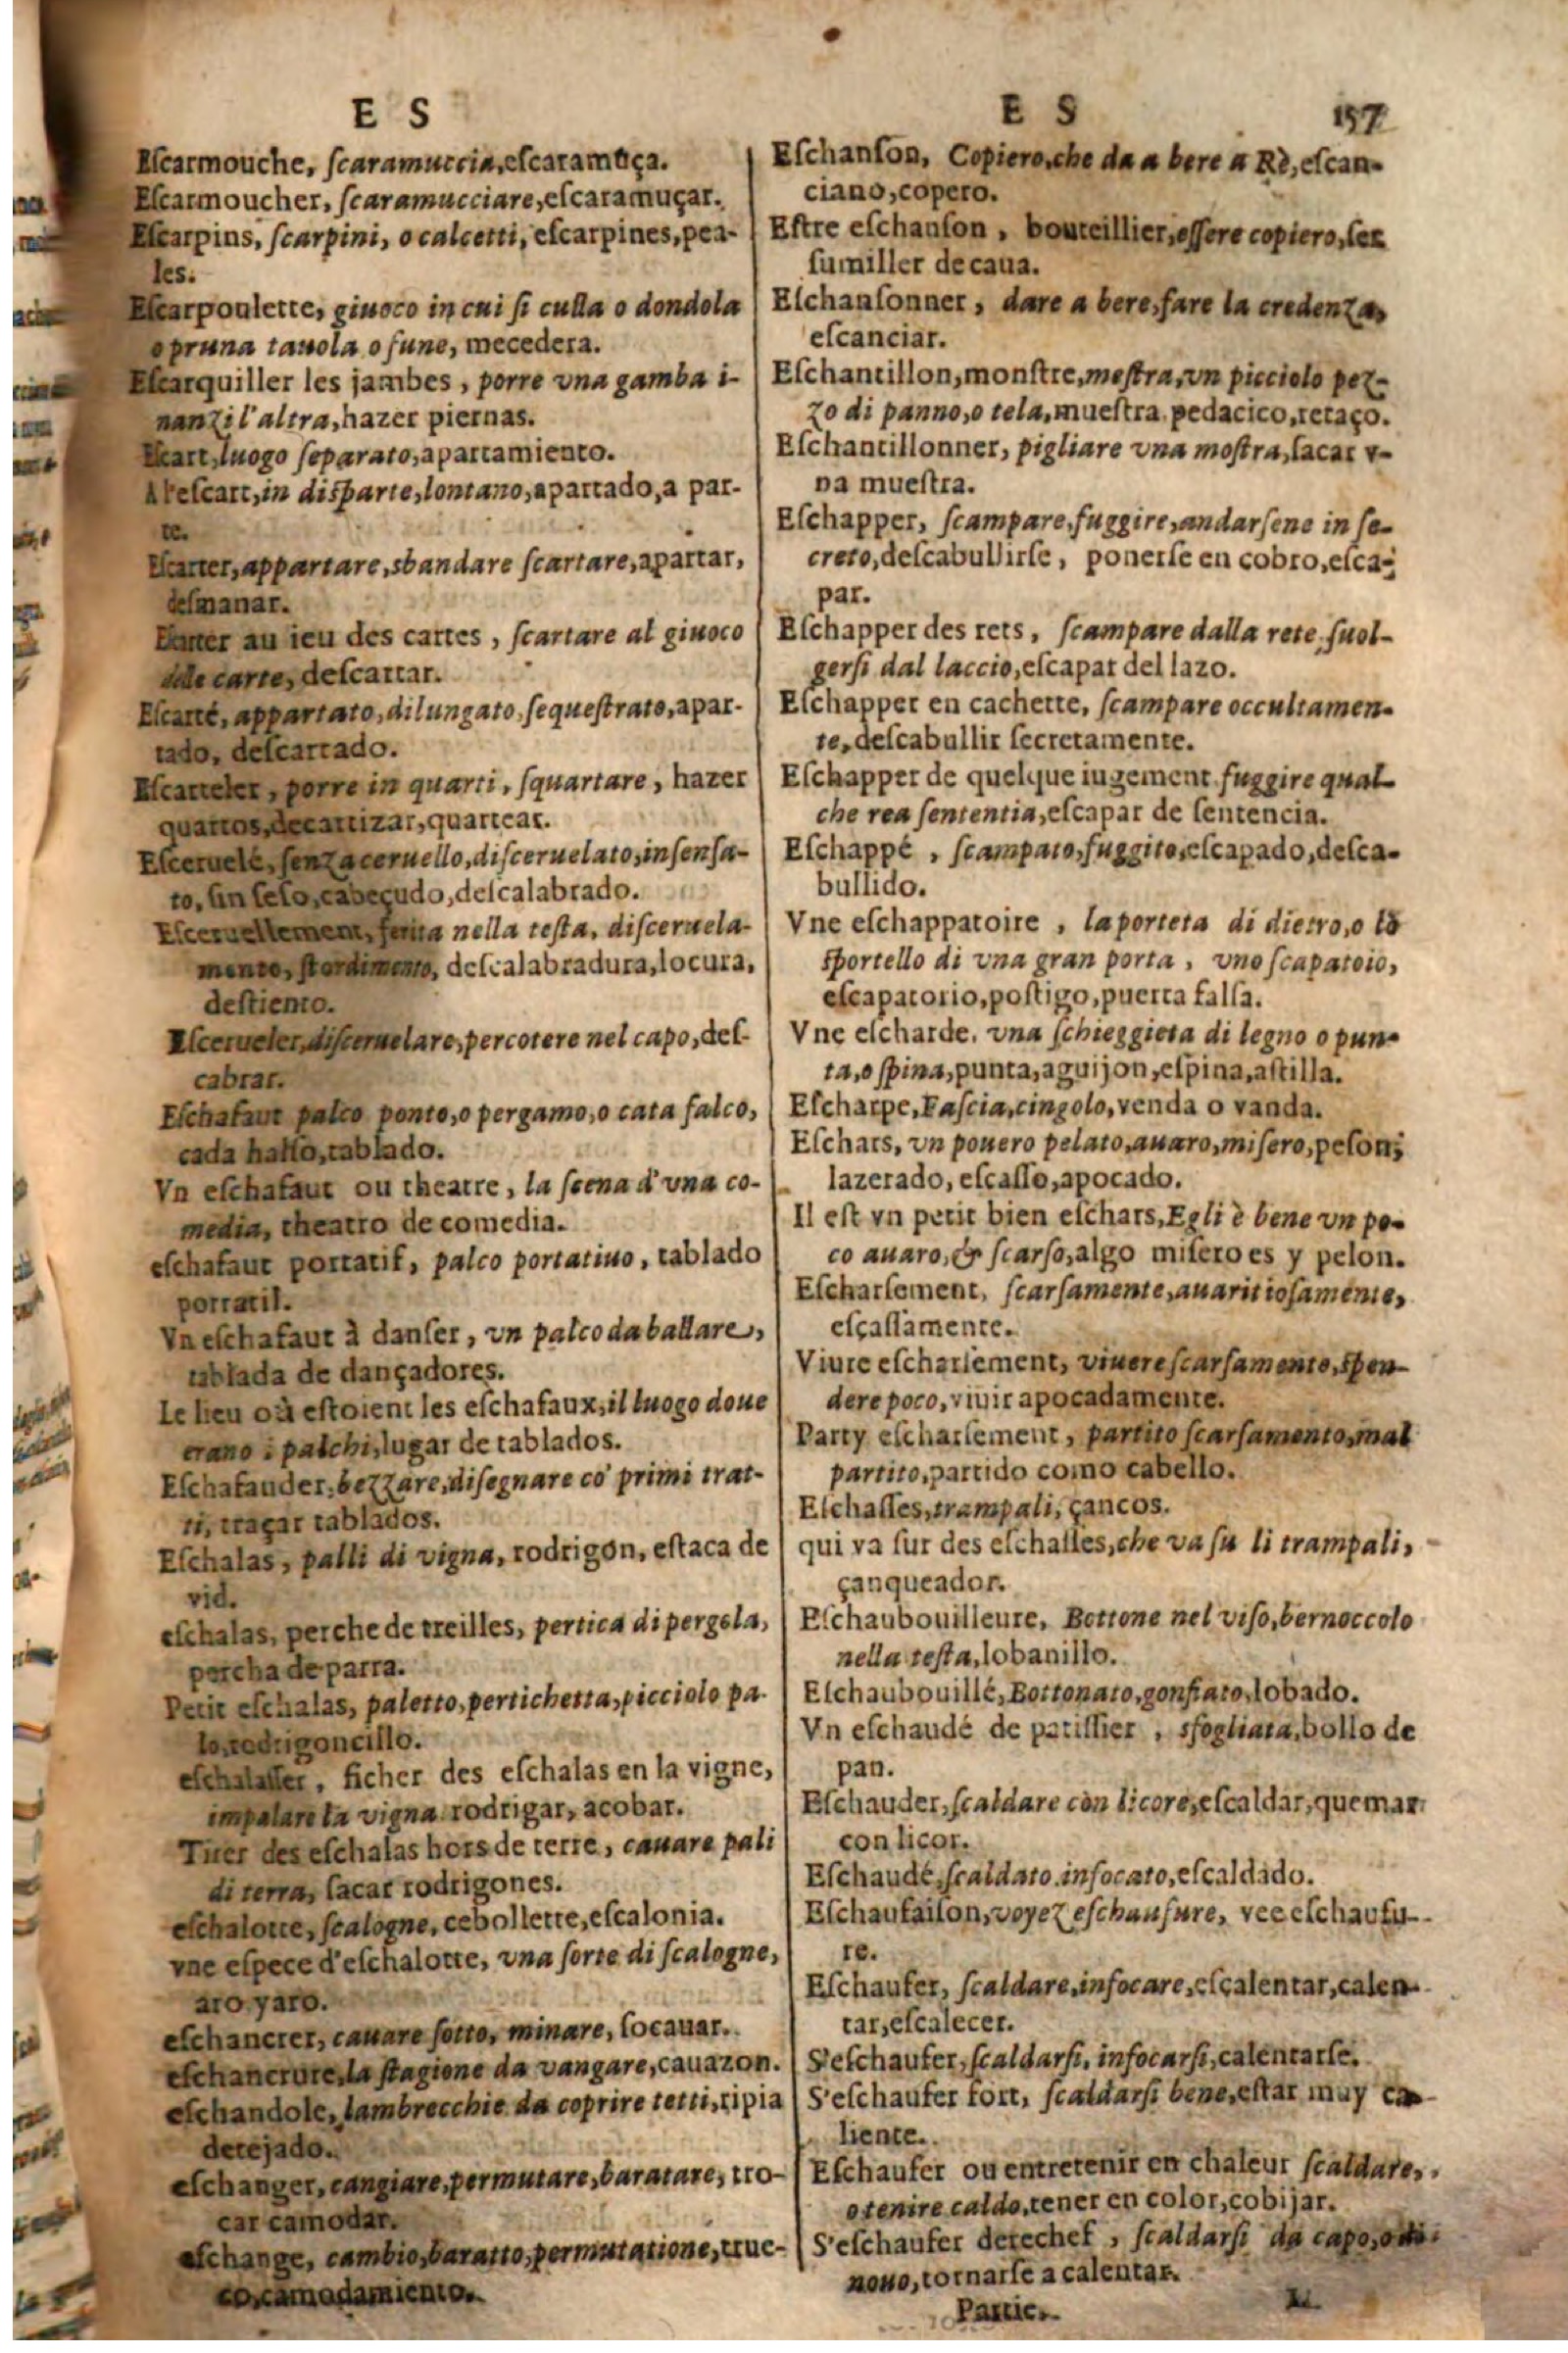 E S
Eſcarmouche, ſcaramuccia, eſcaramuça.
Eſcarmoucher, ſcaramucciare, eſcaramuçar.
Eſcarpins, ſcarpini, o calcetti, eſcarpines, pea-
les.
Eſcarpoulette, giuoco in cui ſi culla o dondola
o pruna tauola o fune, mecedera.
Eſcarquiller les jambes, porre vna gamba i-
nanzi l'altra, hazer piernas.
Eſcart, luogo ſeparato, apartamiento.
A l'eſcart, in diſparte, lontano, apartado, a par-
te.
Eſcarter, appartare, sbandare ſcartare, apartar,
deſmanar.
Eſcarter au ieu des cartes, ſcartare al giuoco
delle carte, deſcartar.
Eſcarté, appartato, dilungato, ſequeſtrato, apar-
tado, deſcartado.
Eſcarteler, porre in quarti, ſquartare, hazer
quartos, decartizar, quartear.
Eſceruelé, ſenza ceruello, diſceruelato, inſenſa-
to, ſin ſeſo, cabeçudo, deſcalabrado.
Eſceruellement, ferita nella teſta, diſceruela-
mento, ſtordimento, deſcalabradura, locura,
deſtiento.
Eſcerueler, diſceruelare, percotere nel capo, deſ-
cabrar.
Eſchafaut palco ponto, o pergamo, o cata falco,
cada halſo, tablado.
Vn eſchafaut ou theatre, la ſcena d'vna co-
media, theatro de comedia.
eſchafaut portatif, palco portatiuo, tablado
portatil.
Vn eſchafaut à danſer, vn palco da ballare,
tablada de dançadores.
Le lieu où eſtoient les eſchafaux, il luogo doue
erano i palchi, lugar de tablados.
Eſchafauder, bezzare, diſegnare co' primi trat-
ti, traçar tablados.
Eſchalas, palli di vigna, rodrigon, eſtaca de
vid.
eſchalas, perche de treilles, pertica di pergola,
percha de parra.
Petit eſchalas, paletto, pertichetta, picciolo pa-
lo, rodrigoncillo.
eſchalaſſer, ficher des eſchalas en la vigne,
impalare la vigna rodrigar, acobar.
Tirer des eſchalas hors de terre, cauare pali
di terra, ſacar rodrigones.
eſchalotte, ſcalogne, cebollette, eſcalonia.
vne eſpece d'eſchalotte, vna ſorte di ſcalogne,
aro yaro.
eſchancrer, cauare ſotto, minare, ſocauar.
eſchancrure, la ſtagione da vangare, cauazon.
eſchandole, lambrecchie da coprire tetti, ripia
detejado.
eſchanger, cangiare, permutare, baratare, tro-
car camodar.
eſchange, cambio, baratto, permutatione, true-
co, camodamiento.
E S 157
Eſchanſon, Copiero, che da a bere a Rè, eſcan-
ciano, copero.
Eſtre eſchanſon, bouteillier, eſſere copiero, ſer
ſumiller de caua.
Eſchanſonner, dare a bere, fare la credenza,
eſcanciar.
Eſchantillon, monſtre, moſtra, vn picciolo pez-
zo di panno, o tela, mueſtra pedacico, retaço.
Eſchantillonner, pigliare vna moſtra, ſacar v-
na mueſtra.
Eſchapper, ſcampare, fuggire, andarſene in ſe-
creto, deſcabullirſe, ponerſe en cobro, eſca-
par.
Eſchapper des rets, ſcampare dalla rete, ſuol-
gerſi dal laccio, eſcapar del lazo.
Eſchapper en cachette, ſcampare occultamen-
te, deſcabullir ſecretamente.
Eſchapper de quelque iugement fuggire qual-
che rea ſententia, eſcapar de ſentencia.
Eſchappé, ſcampato, fuggito, eſcapado, deſca-
bullido.
Vne eſchappatoire, la porteta di dietro, o lo
ſportello di vna gran porta, vno ſcapatoio,
eſcapatorio, poſtigo, puerta falſa.
Vne eſcharde, vna ſchieggieta di legno o pun-
ta, o ſpina, punta, aguijon, eſpina, aſtilla.
Eſcharpe, Faſcia, cingolo, venda o vanda.
Eſchars, vn pouero pelato, auaro, miſero, peſon,
lazerado, eſcaſſo, apocado.
Il eſt vn petit bien eſchars, Egli è bene vn po-
co auaro, & ſcarſo, algo miſero es y pelon.
Eſcharſement, ſcarſamente, auaritioſamente,
eſçaſſamente.
Viure eſcharſement, viuere ſcarſamente, ſpen-
dere poco, viuir apocadamente.
Party eſcharſement, partito ſcarſamento, mal
partito, partido como cabello.
Eſchaſſes, trampali, çancos.
qui va ſur des eſchaſſes, che va ſu li trampali,
çanqueador.
Eſchaubouilleure, Bottone nel viſo, bernoccolo
nella teſta, lobanillo.
Eſchaubouillé, Bottonato, gonfiato, lobado.
Vn eſchaudé de patiſſier, sfogliata, bollo de
pan.
Eſchauder, ſcaldare con licore, eſcaldar, quemar
con licor.
Eſchaudé, ſcaldato infocato, eſcaldado.
Eſchaufaiſon, voyez eſchaufure, vee eſchaufu-
re.
Eſchaufer, ſcaldare, infocare, eſçalentar, calen-
tar, eſcalecer.
S'eſchaufer, ſcaldarſi, infocarſi, calentarſe.
S'eſchaufer fort, ſcaldarſi bene, eſtar muy ca-
liente.
Eſchaufer ou entretenir en chaleur ſcaldare,
o tenire caldo, tener en color, cobijar.
S'eſchaufer derechef, ſcaldarſi da capo, o di
nouo, tornarſe a calentar.
Partie. L